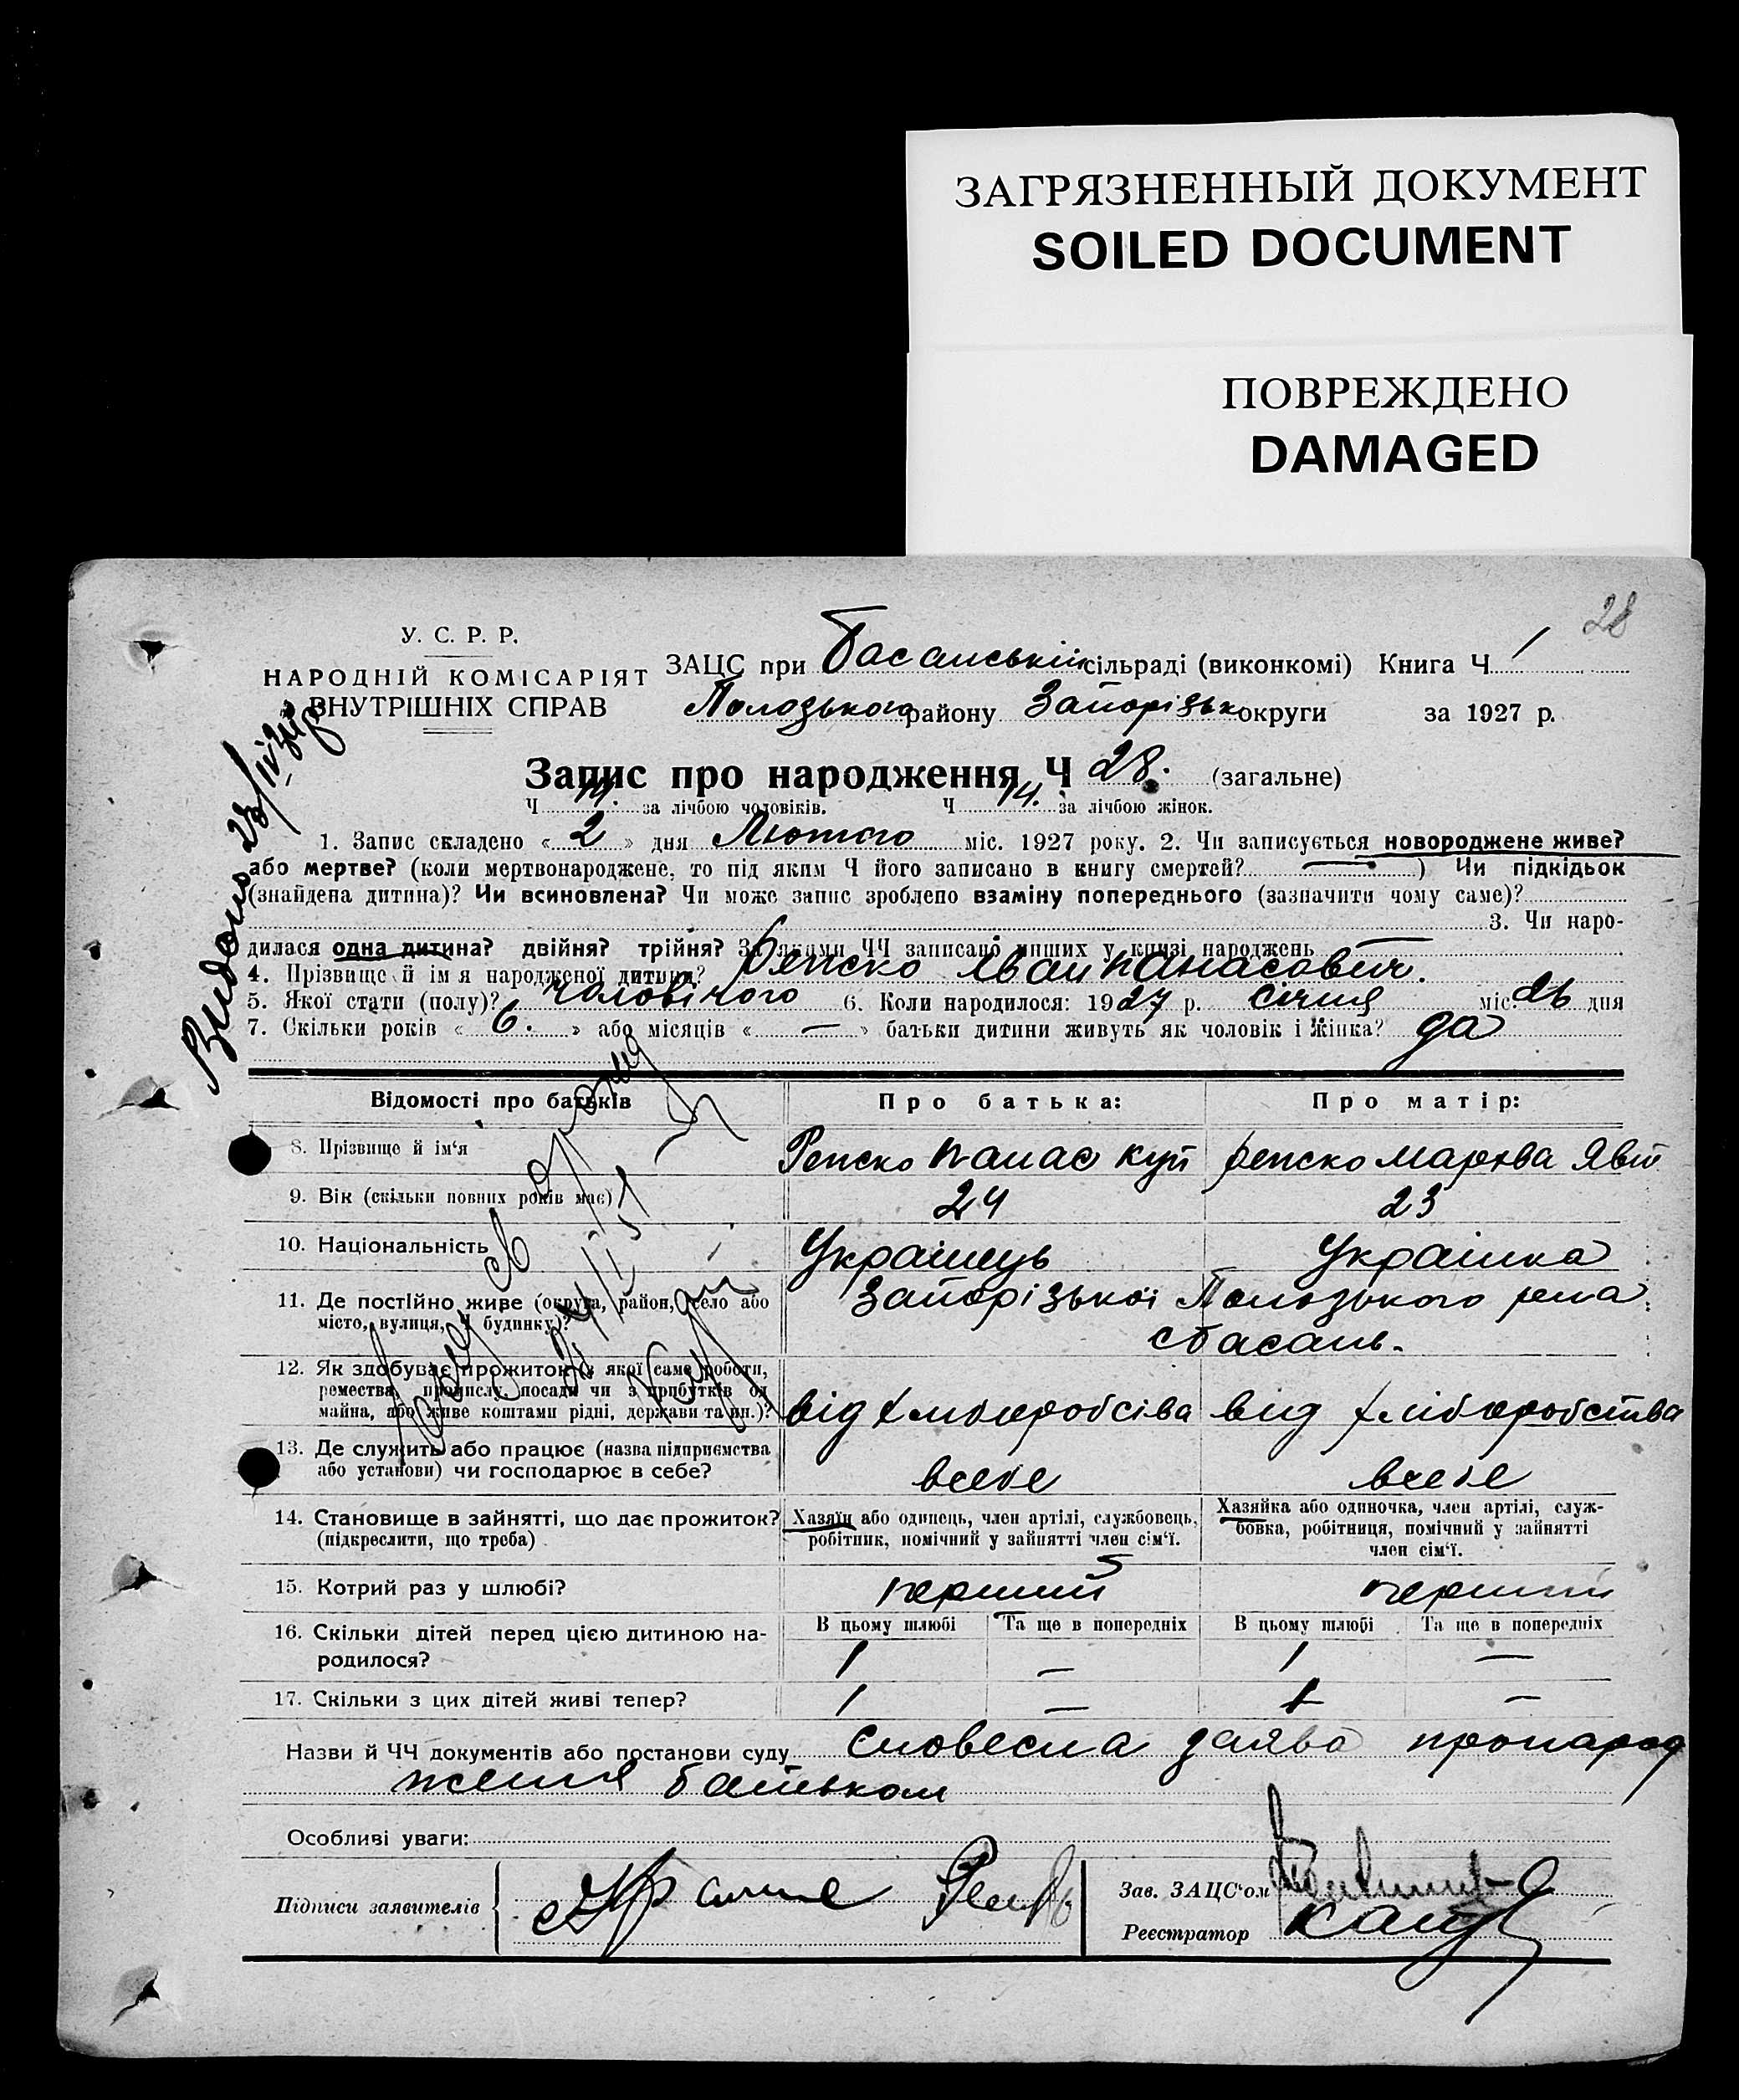 ЗАГРЯЗНЕННЫЙ ДОКУМЕНТ
SOILED DOCUMENT
ПОВРЕЖДЕНО
DAMAGED
28
У. С. Р. Р.
НАРОДНІЙ КОМІСАРІЯТ
ВНУТРІШНІХ СПРАВ
ЗАЦС при Басанській сільраді (виконкомі) Книга Ч 1
Полозького району Запорізьк округи за 1927 р.
Запис про народження Ч 28. (загальне)
Ч 14. за лічбою чоловіків. Ч 14. за лічбою жінок.
1. Запис складено « 2 » дня Лютого міс. 1927 року. 2. Чи записується новороджене живе?
або мертве? (коли мертвонароджене, то під яким Ч його записано в книгу смертей? — ) Чи підкідьок
(знайдена дитина)? Чи всиновлена? Чи може запис зроблено взаміну попереднього (зазначити чому саме)?
3. Чи наро-
дилася одна дитина? двійня? трійня? За якими ЧЧ записано инших у книзі народжень —
4. Прізвище й ім'я народженої дитини? Репско Іван Панасович.
5. Якої стати (полу)? чоловічого 6. Коли народилося: 1927 р. січня міс. 26 дня
7. Скільки років « 6. » або місяців « — » батьки дитини живуть як чоловік і жінка? да
Видано
Відомості про батьків Про батька: Про матір:
8. Прізвище й ім'я Репско Панас Куп Репско Марфва Явт
9. Вік (скільки повних років має) 24 23
10. Національність Українець Українка
11. Де постійно живе (округа, район, село або Запорізької Полозького
місто, вулиця, Ч будинку)? с Басань.
12. Як здобуває прожиток (з якої саме роботи,
ремества, промислу, посади чи з прибутків од
майна, або живе коштами рідні, держави та ин.)? від хліборобсіва вид хліборобства
13. Де служить або працює (назва підприємства
або установи) чи господарює в себе? всебе всебе
14. Становище в зайнятті, що дає прожиток?
(підкреслити, що треба)
Хазяїн або одинець, член артілі, службовець,
робітник, помічний у зайнятті член сім'ї.
Хазяйка або одиночка, член артілі, служ-
бовка, робітниця, помічний у зайнятті
член сім'ї.
15. Котрий раз у шлюбі? перший перший
16. Скільки дітей перед цією дитиною на-
родилося?
В цьому шлюбі Та ще в попередніх В цьому шлюбі Та ще в попередніх
1 — 1 —
17. Скільки з цих дітей живі тепер? 1 — 1 —
Назви й ЧЧ документів або постанови суду Словесна заява пронарод
ження батьком
Особливі уваги:
Підписи заявителів
Зав. ЗАЦС'ом
Реєстратор